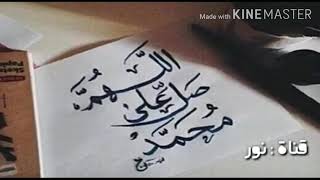 Made with KINEMASTER
اللَّهُمَّ
صَلِّ عَلَى
مُحَمَّد
قناة : نور